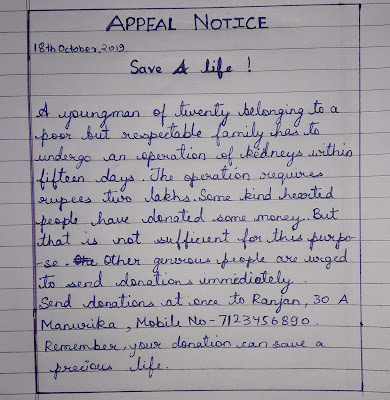 APPEAL NOTICE
18th October, 2019
Save A life !
A youngman of twenty belonging to a
poor but respectable family has to
undergo an operation of kedneys within
fifteen days. The operation requires
rupees two lakhs. Some kind hearted
people have donated some money. But
that is not sufficient for this purpo-
-se. Other generous people are urged
to send donations immediately.
Send donations at once to Ranjan, 30 A
Manurika, Mobile No-7123456890.
Remember, your donation can save a
precious life.